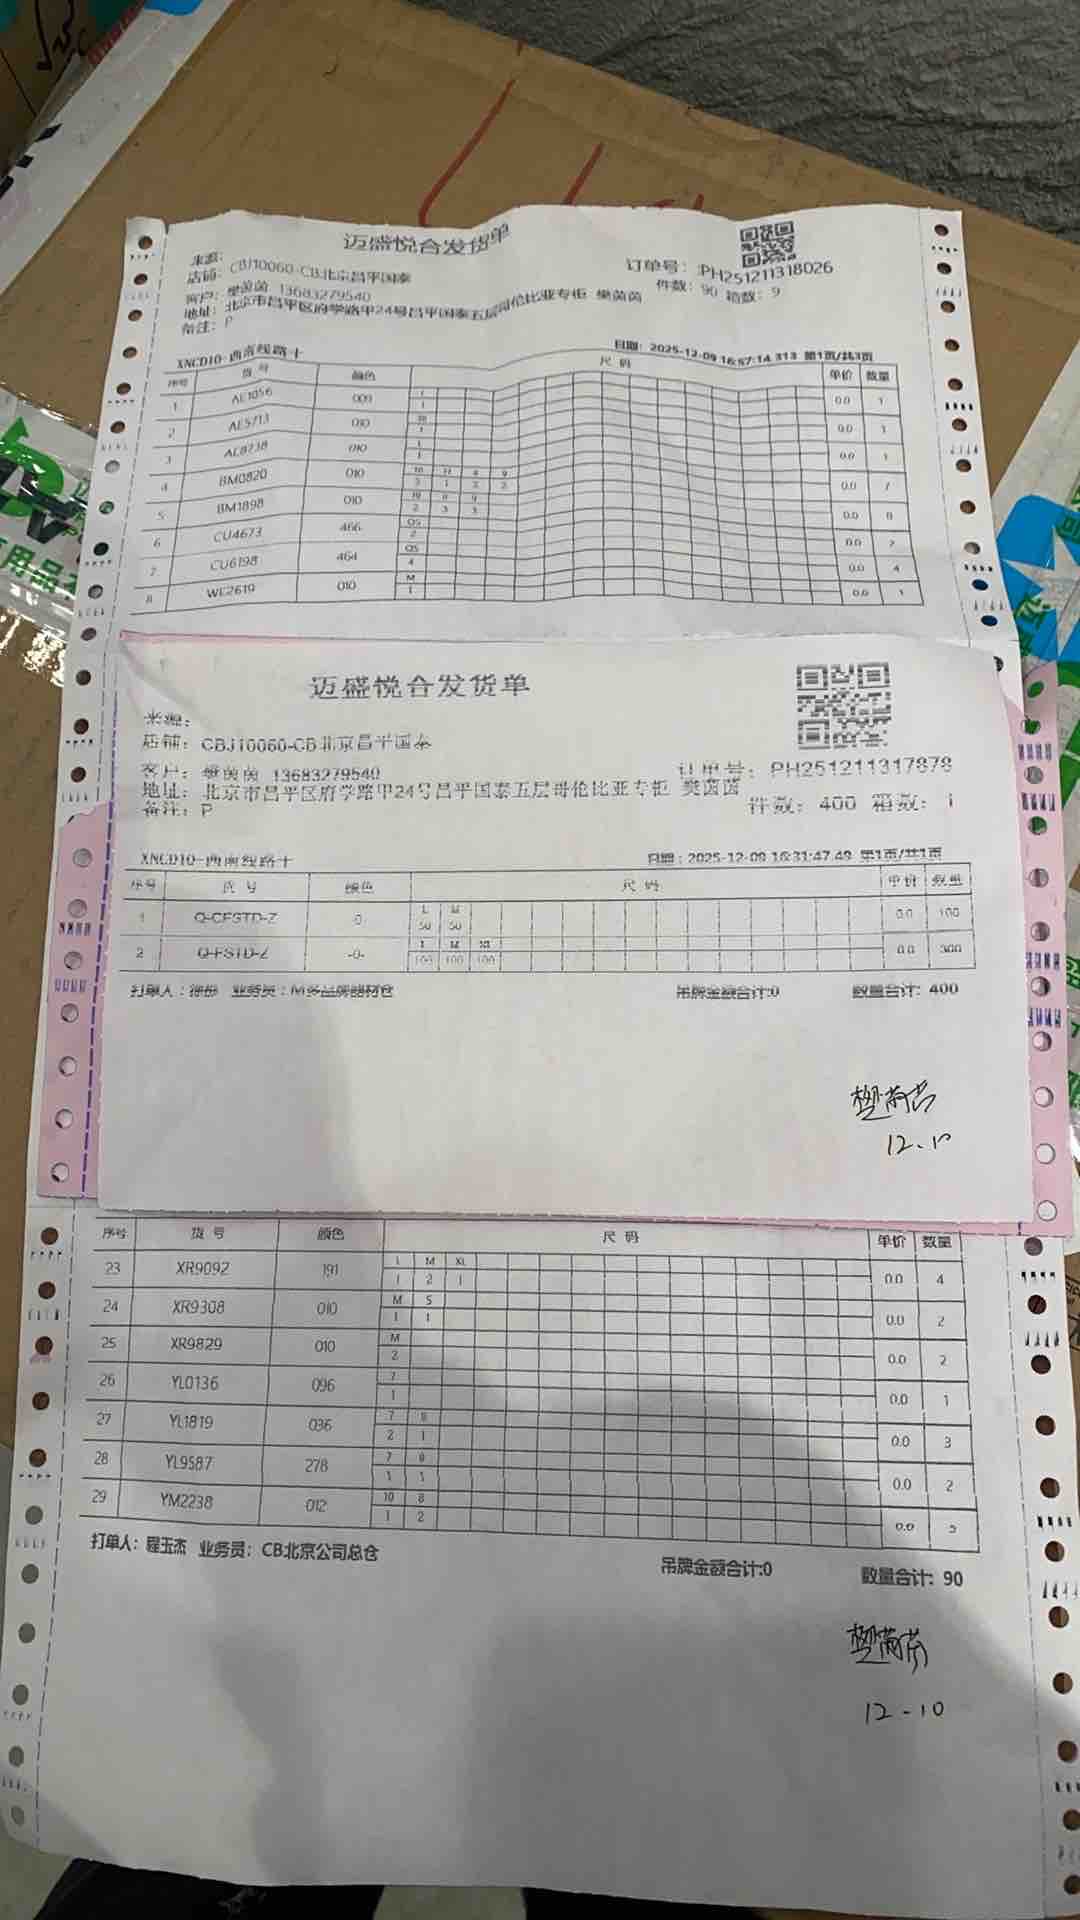 迈盛悦合发货单
来源:
店铺: CBJ10060-CB北京昌平国泰
订单号: PH251211318026
客户: 樊茵茵 13683279540
件数: 90 箱数: 9
地址: 北京市昌平区府学路甲24号昌平国泰五层哥伦比亚专柜 樊茵茵
备注: P
XNCD10-西南线路十
日期: 2025-12-09 16:57:14.313 第1页/共3页
序号 货号 颜色 尺码 单价 数量
1 AE1056 009 0.0 1
2 AE5713 010 0.0 1
3 AE8738 010 0.0 1
4 BM0820 010 0.0 7
5 BM1898 010 0.0 8
6 CU4673 466 OS 2 0.0 2
7 CU6198 464 OS 4 0.0 4
8 WE2619 010 M 1 0.0 1
迈盛悦合发货单
来源:
店铺: CBJ10060-CB北京昌平国泰
客户: 樊茵茵 13683279540
订单号: PH251211317878
地址: 北京市昌平区府学路甲24号昌平国泰五层哥伦比亚专柜 樊茵茵
件数: 400 箱数: 1
备注: P
XNCD10-西南线路十
日期: 2025-12-09 16:31:47.49 第1页/共1页
序号 货号 颜色 尺码 单价 数量
L M
1 Q-CFSTD-Z -0- 50 50 0.0 100
L M XL
2 Q-FSTD-Z -0- 100 100 100 0.0 300
打单人: 业务员: M多品牌器材仓 吊牌金额合计:0 数量合计: 400
樊茵茵
12.10
序号 货号 颜色 尺码 单价 数量
L M XL
23 XR9092 191 1 2 1 0.0 4
M S
24 XR9308 010 1 1 0.0 2
M
25 XR9829 010 2 0.0 2
7
26 YL0136 096 1 0.0 1
7 8
27 YL1819 036 2 1 0.0 3
28 YL9587 278 1 1 0.0 2
10 8
29 YM2238 012 1 2 0.0 3
打单人: 程玉杰 业务员: CB北京公司总仓 吊牌金额合计:0 数量合计: 90
樊茵茵
12-10